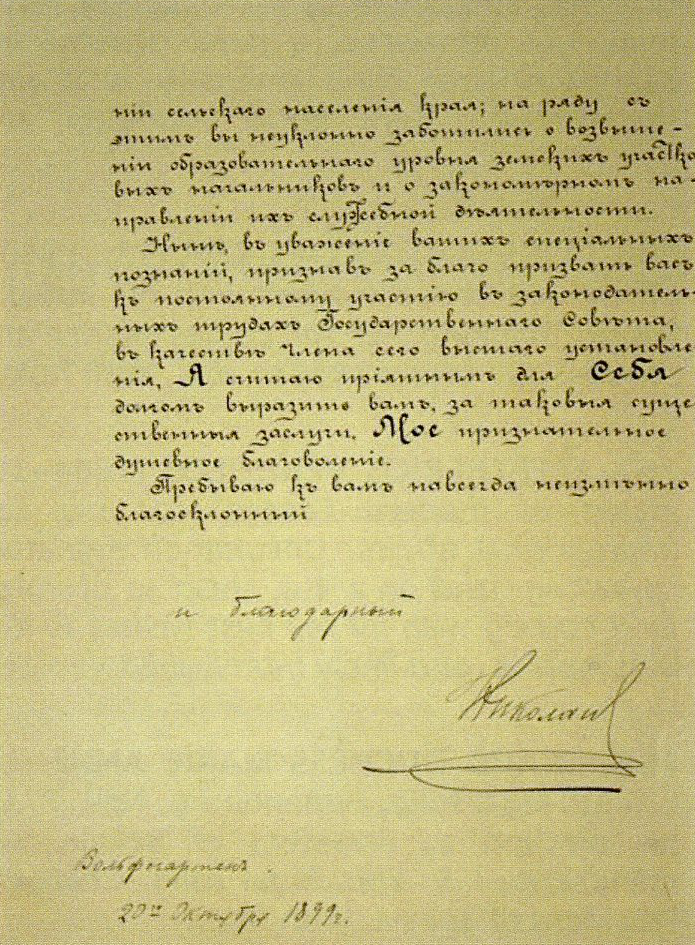 ніи сельскаго населенія края; на ряду съ
этимъ вы неуклонно заботились о возвыше-
ніи образовательнаго уровня земскихъ участко
выхъ начальниковъ и о закономѣрномъ на-
правленіи ихъ служебной дѣятельности.
Нынѣ, въ уваженіе вашихъ спеціальныхъ
познаній, признавъ за благо призвать васъ
къ постоянному участію въ законодатель-
ныхъ трудахъ Государственнаго Совѣта,
въ качествѣ Члена сего высшаго установле
нія, Я считаю пріятнымъ для Себя
долгомъ выразить вамъ, за таковыя суще
ственныя заслуги, Мое признательное
душевное благоволеніе.
Пребываю къ вамъ навсегда неизмѣнно
благосклонный
и благодарный
Николай
Вольфсгартенъ.
20го Октября 1899г.